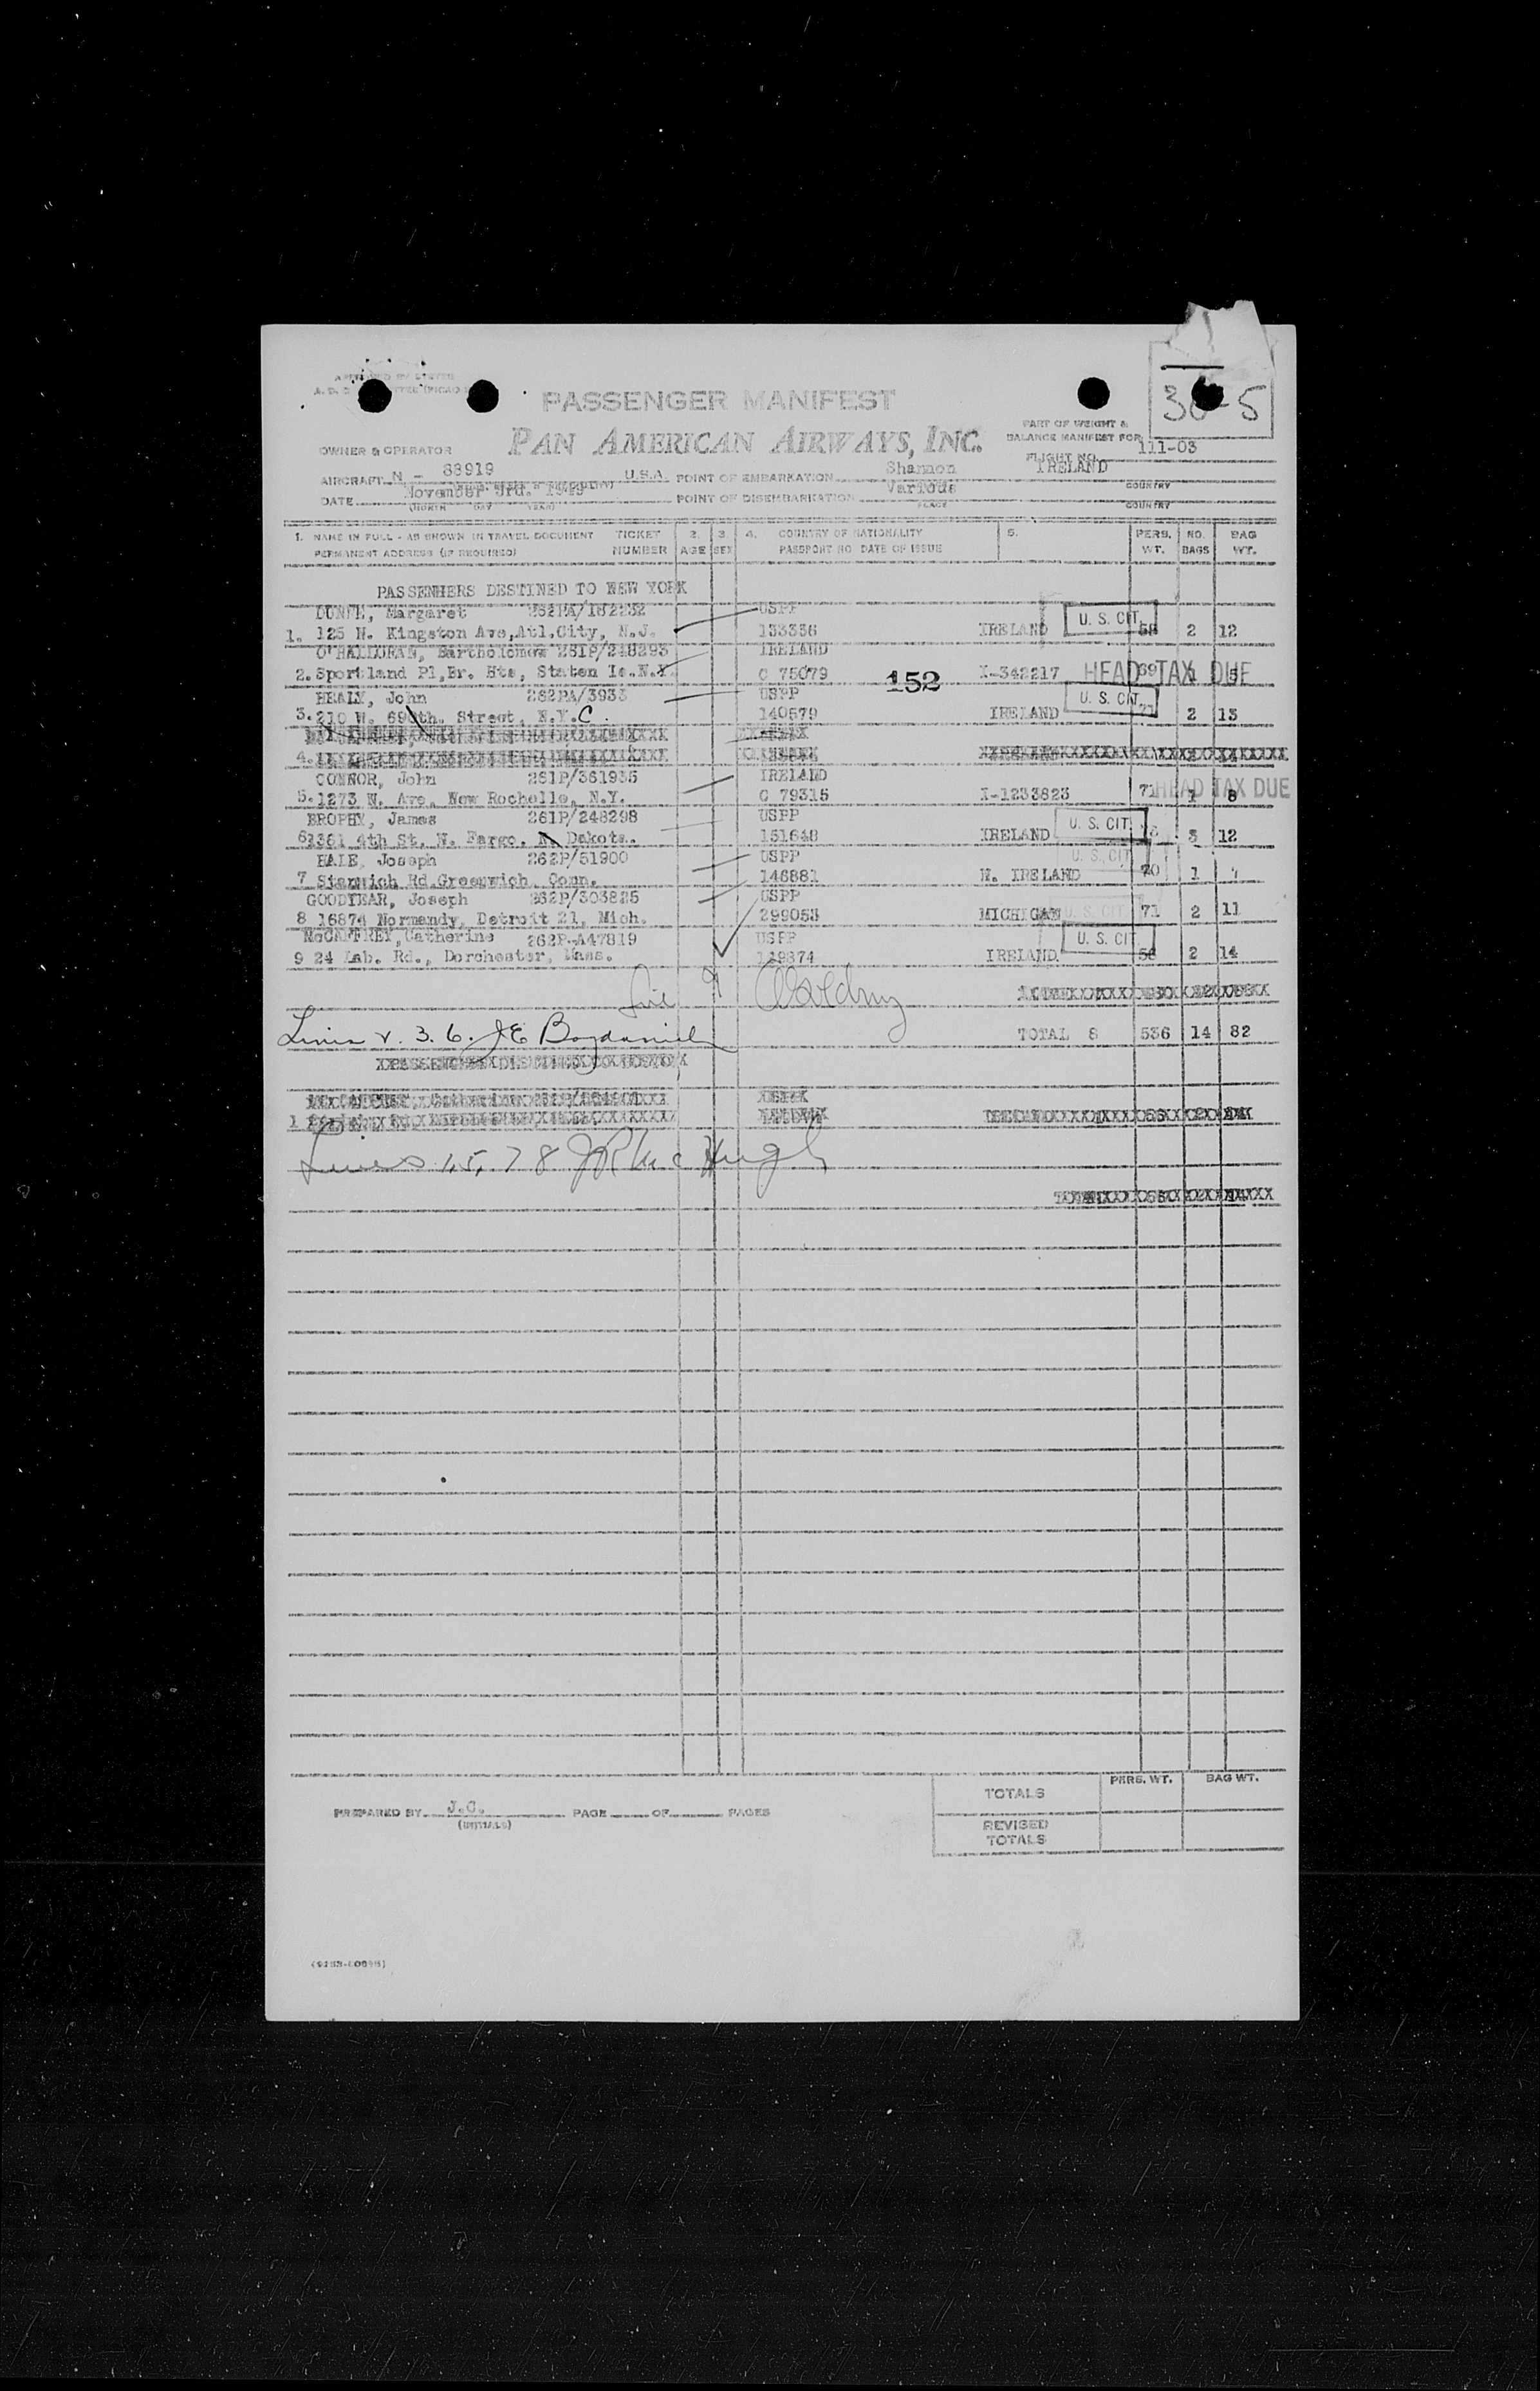 PASSENGER MANIFEST
36-5
PAN AMERICAN AIRWAYS, INC.
PART OF WEIGHT &
BALANCE MANIFEST FOR
FLIGHT NO. 111-03
OWNER & OPERATOR
AIRCRAFT N - 88919 U.S.A. POINT OF EMBARKATION Shannon IRELAND
COUNTRY
DATE November 3rd. 1949 POINT OF DISEMBARKATION Various
(MONTH DAY YEAR) PLACE COUNTRY
1. NAME IN FULL - AS SHOWN IN TRAVEL DOCUMENT TICKET 2. 3. 4. COUNTRY OF NATIONALITY 5. PERS. NO. BAG
PERMANENT ADDRESS (IF REQUIRED) NUMBER AGE SEX PASSPORT NO DATE OF ISSUE WT. BAGS WT.
PASSENHERS DESTINED TO NEW YORK
Margaret 262PA/182232 USPP
1. 125 N. Kingston Ave, Atl.City, N.J. 133336 IRELAND U. S. CIT. 58 2 12
O'HALLORAN, Bartholomew 261P/248293 IRELAND
2. Sportland Pl, Br. Hts, Staten Is. N.Y. C 75079 152 X-342217 HEAD TAX DUE 69 1
HEALY, John 262PA/3933 USPP
3. 210 W. 69th. Street, N.Y.C. 140579 IRELAND U. S. CIT. 71 2 13
4.
CONNOR, John 261P/361935 IRELAND
5. 1273 N. Ave. New Rochelle, N.Y. C 79315 X-1233823 71 HEAD TAX DUE 1 8
BROPHY, James 261P/248298 USPP
6 1381 4th St. N. Fargo. N. Dakota. 151648 IRELAND U. S. CIT. 3 12
HALE, Joseph 262P/51900 USPP
7 Stanwich Rd. Greenwich. Conn. 146881 N. IRELAND U. S. CIT. 70 1 7
GOODYEAR, Joseph 262P/303825 USPP
8 16874 Normandy, Detroit 21, Mich. 299053 MICHIGAN U. S. CIT. 71 2 11
McCAFFREY, Catherine 262P-A47819 USPP
9 24 Lab. Rd., Dorchester, Mass. 149374 IRELAND U. S. CIT. 56 2 14
9
Lines 2. 3. 6. J E
TOTAL 8 536 14 82
1
Lines 1, 5, 7 8 J R McHugh
TOTALS PERS. WT. BAG WT.
PREPARED BY J.C. PAGE OF PAGES
(INITIALS)
REVISED
TOTALS